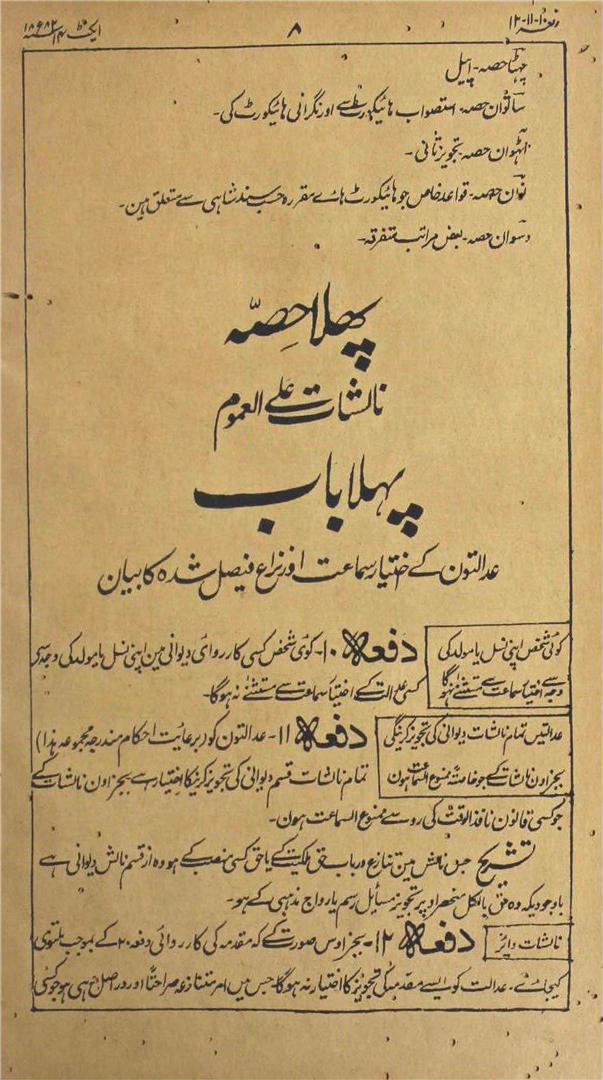 دفعہ ۱۰-۱۱-۱۲
۸
ایکٹ ۱۴ سنہ ۱۸۸۲ء
چھٹا حصہ - اپیل
ساتوان حصہ - استصواب ہائیکورٹ سے اور نگرانی ہائیکورٹ کی -
آٹھوان حصہ - تجویز ثانی -
نوان حصہ - قواعد خاص جو ہائیکورٹ ہاے مقررہ حسب سند شاہی سے متعلق ہین -
دسوان حصہ - بعض مراتب متفرقہ -
پہلا حصّہ
نالشات علے العموم
پہلا باب
عدالتون کے اختیار سماعت اور نزاع فیصل شدہ کا بیان
کوئی شخص اپنی نسل یا مولد کی
وجہ سے اختیار سماعت سے مستثنے نہوگا
دفعہ ۱۰ - کوئی شخص کسی کارروائی دیوانی مین اپنی نسل یا مولد کی وجہ سے
کسی عدالت کے اختیار سماعت سے مستثنے نہ ہوگا -
عدالتین تمام نالشات دیوانی کی تجویز کرینگی
بجز اون نالشات کے جو خاصتہً ممنوع السماعت ہون
دفعہ ۱۱ - عدالتون کو (برعایت احکام مندرجہ مجموعہ ہذا)
تمام نالشات قسم دیوانی کی تجویز کرنیکا اختیار ہے بجز اون نالشات کے
جو کسی قانون نافذ الوقت کی رو سے ممنوع السماعت ہون -
تشریح جس نالش مین تنازعہ درباب حق ملکیت کے یا حق کسی منصب کے ہو وہ از قسم نالش دیوانی ہے
باوجودیکہ وہ حق بالکل منحصر اوپر تجویز مسایل رسم یا رواج مذہبی کے ہو -
نالشات دایر
دفعہ ۱۲ - بجز اوس صورت کے کہ مقدمہ کی کارروائی دفعہ ۲۰ کے بموجب ملتوی
کیجائے - عدالت کو ایسے مقدمہ کی تجویز کا اختیار نہ ہوگا - جس مین امر متنازعہ صراحتاً اور دراصل وہی ہو جو کسی